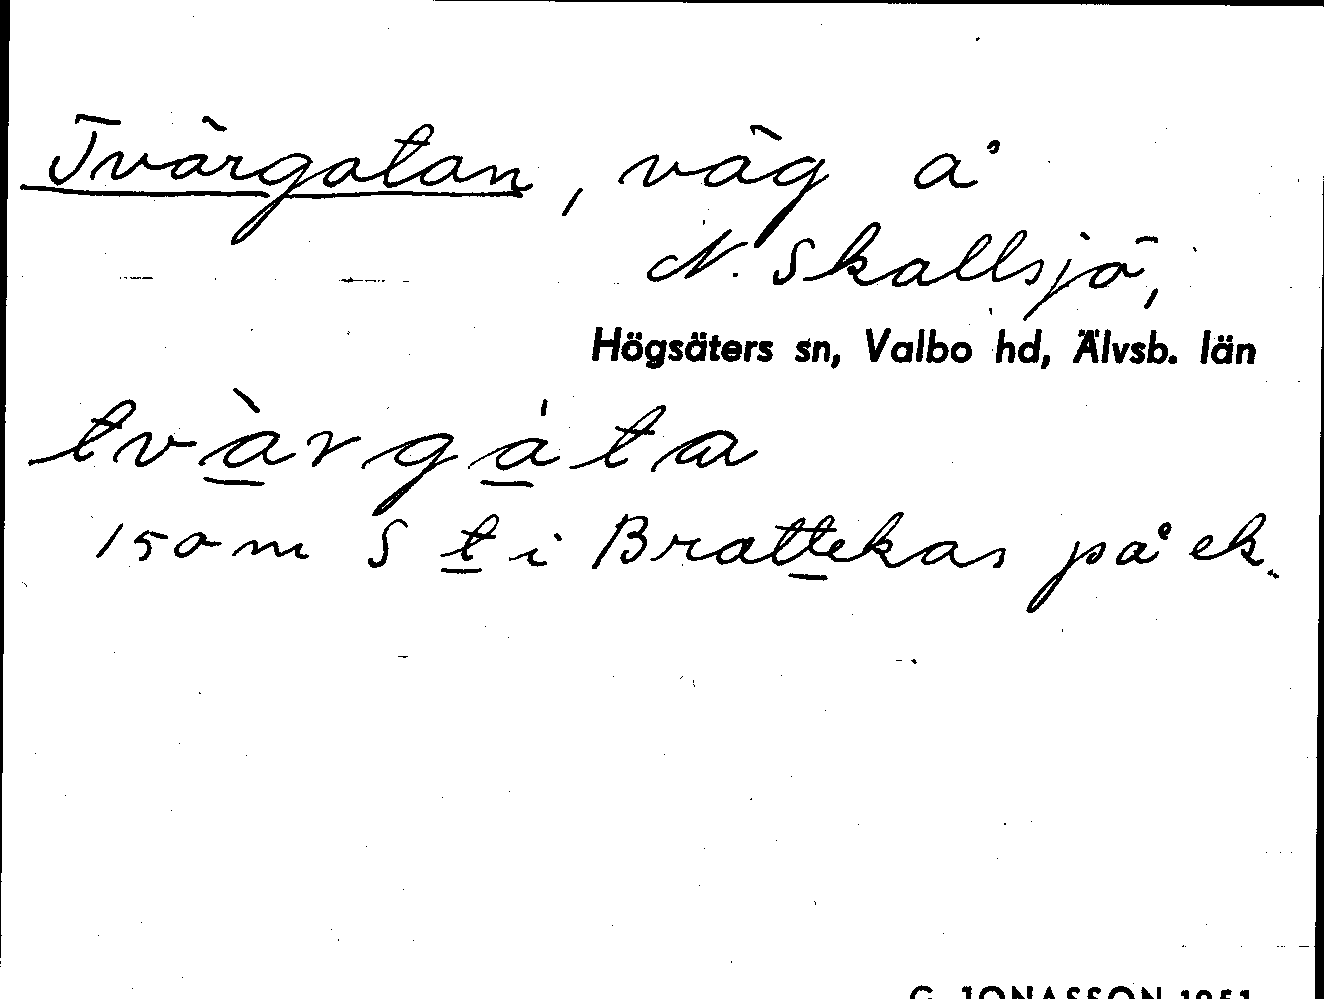 Tvärgatan, väg å
N. Skallsjö,
Högsäters sn, Valbo hd, Älvsb. län
tvàrgáta
150 m S t i Brattekas på ek.
G. JONASSON 1951